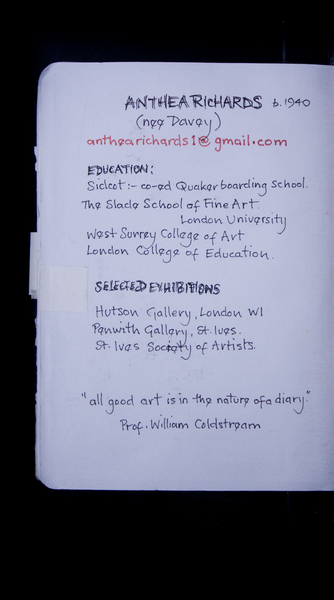 ANTHEA RICHARDS b.1940
(nee Davey)
anthearichards1@gmail.com
EDUCATION:
Sidcot:- co-ed Quaker boarding school.
The Slade School of Fine Art.
London University
West Surrey College of Art
London College of Education.
SELECTED EXHIBITIONS
Hutson Gallery, London W1
Penwith Gallery, St. Ives.
St. Ives Society of Artists.
"all good art is in the nature of a diary."
Prof. William Coldstream